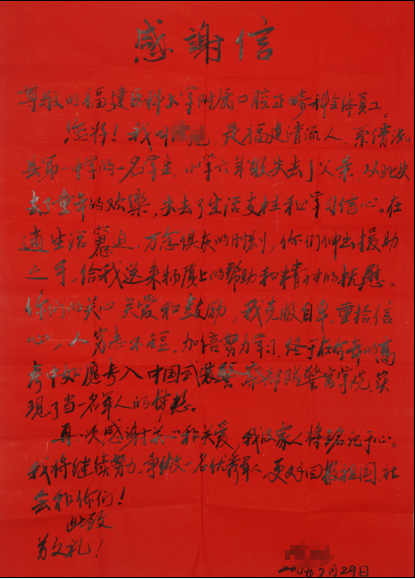 感謝信
尊敬的福建医科大学附属口腔正畸科全体员工
您好！我叫 是福建清流人 系清流
县第一中学的一名学生 小学六年级失去了父亲 从此失
去了童年的欢乐，失去了生活支柱和学习信心。在
这生活窘迫 万念俱灰的时刻，你们伸出援助
之手，给我送来物质上的帮助和精神的抚慰。
你们的关心 关爱和鼓励，我克服自卑，重拾信
心，人穷志不短，加倍努力学习 终于在今年的高
考中如愿考入中国武装警察部队警官学院 实
现了当一名军人的梦想。
再一次感谢关心和关爱，我及家人将铭记于心。
我将继续努力，争做一名优秀军人，更好回报祖国、社
会和你们！
此致
敬礼！
7月29日